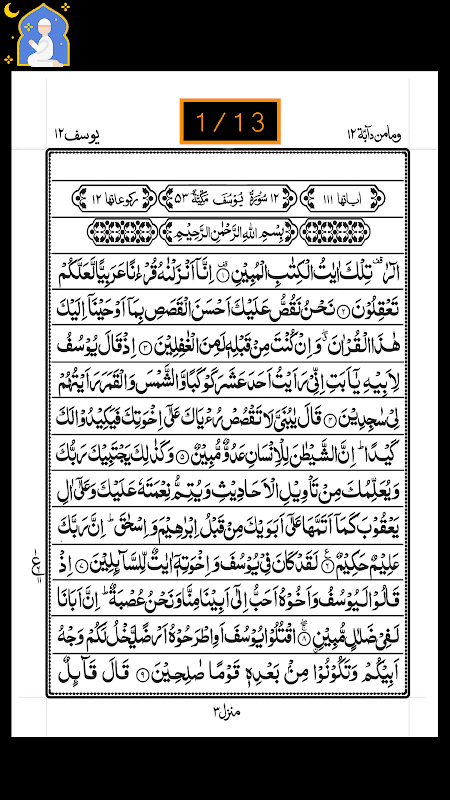 1/13
ومامن دآبّة ١٢
يوسف ١٢
اٰیاتها ١١١
١٢ سُوْرَةُ يُوْسُفَ مَكِّيَّةٌ ٥٣
ركوعاتها ١٢
بِسْمِ اللّٰهِ الرَّحْمٰنِ الرَّحِيْمِ
الٓرٰ ۫ تِلْكَ اٰيٰتُ الْكِتٰبِ الْمُبِيْنِ ۝١ اِنَّاۤ اَنْزَلْنٰهُ قُرْءٰنًا عَرَبِيًّا لَّعَلَّكُمْ
تَعْقِلُوْنَ ۝٢ نَحْنُ نَقُصُّ عَلَيْكَ اَحْسَنَ الْقَصَصِ بِمَاۤ اَوْحَيْنَاۤ اِلَيْكَ
هٰذَا الْقُرْاٰنَ ۖ وَاِنْ كُنْتَ مِنْ قَبْلِهٖ لَمِنَ الْغٰفِلِيْنَ ۝٣ اِذْ قَالَ يُوْسُفُ
لِاَبِيْهِ يٰۤاَبَتِ اِنِّيْ رَاَيْتُ اَحَدَ عَشَرَ كَوْكَبًا وَّالشَّمْسَ وَالْقَمَرَ رَاَيْتُهُمْ
لِيْ سٰجِدِيْنَ ۝٤ قَالَ يٰبُنَيَّ لَا تَقْصُصْ رُءْيَاكَ عَلٰۤى اِخْوَتِكَ فَيَكِيْدُوْا لَكَ
كَيْدًا ؕ اِنَّ الشَّيْطٰنَ لِلْاِنْسَانِ عَدُوٌّ مُّبِيْنٌ ۝٥ وَكَذٰلِكَ يَجْتَبِيْكَ رَبُّكَ
وَيُعَلِّمُكَ مِنْ تَاْوِيْلِ الْاَحَادِيْثِ وَيُتِمُّ نِعْمَتَهٗ عَلَيْكَ وَعَلٰۤى اٰلِ
يَعْقُوْبَ كَمَاۤ اَتَمَّهَا عَلٰۤى اَبَوَيْكَ مِنْ قَبْلُ اِبْرٰهِيْمَ وَاِسْحٰقَ ؕ اِنَّ رَبَّكَ
عَلِيْمٌ حَكِيْمٌ ۝٦ لَقَدْ كَانَ فِيْ يُوْسُفَ وَاِخْوَتِهٖۤ اٰيٰتٌ لِّلسَّآىِٕلِيْنَ ۝٧ اِذْ
قَالُوْا لَيُوْسُفُ وَاَخُوْهُ اَحَبُّ اِلٰۤى اَبِيْنَا مِنَّا وَنَحْنُ عُصْبَةٌ ؕ اِنَّ اَبَانَا
لَفِيْ ضَلٰلٍ مُّبِيْنِ ۝٨ اقْتُلُوْا يُوْسُفَ اَوِ اطْرَحُوْهُ اَرْضًا يَّخْلُ لَكُمْ وَجْهُ
اَبِيْكُمْ وَتَكُوْنُوْا مِنْۢ بَعْدِهٖ قَوْمًا صٰلِحِيْنَ ۝٩ قَالَ قَآىِٕلٌ
منزل ٣